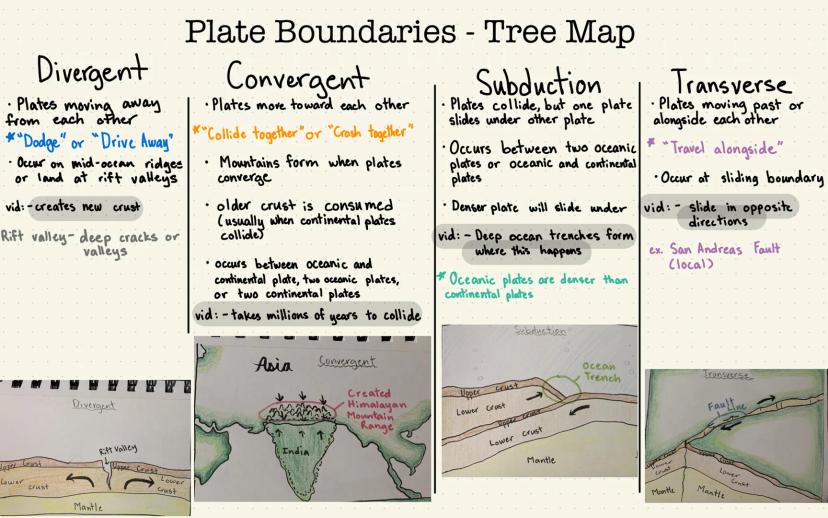 Plate Boundaries - Tree Map
Divergent
· Plates moving away
from each other
*"Dodge" or "Drive Away"
· Occur on mid-ocean ridges
or land at rift valleys
vid: - creates new crust
Rift valley - deep cracks or
valleys
Convergent
· Plates move toward each other
*"Collide together" or "Crash together"
· Mountains form when plates
converge
· older crust is consumed
(usually when continental plates
collide)
· occurs between oceanic and
continental plate, two oceanic plates,
or two continental plates
vid: - takes millions of years to collide
Subduction
· Plates collide, but one plate
slides under other plate
· Occurs between two oceanic
plates or oceanic and continental
plates
· Denser plate will slide under
vid: - Deep ocean trenches form
where this happens
* Oceanic plates are denser than
continental plates
Transverse
· Plates moving past or
alongside each other
* "Travel alongside"
· Occur at sliding boundary
vid: - slide in opposite
directions
ex. San Andreas Fault
(local)
Divergent
Rift Valley
Upper Crust
Upper Crust
Lower
crust
Lower
Crust
Mantle
Asia
Convergent
Created
Himalayan
Mountain
Range
India
Subduction
Ocean
Trench
Upper Crust
Lower Crust
Upper Crust
Lower Crust
Mantle
Transverse
Fault
Line
Lower
Crust
Lower
Crust
Mantle
Mantle